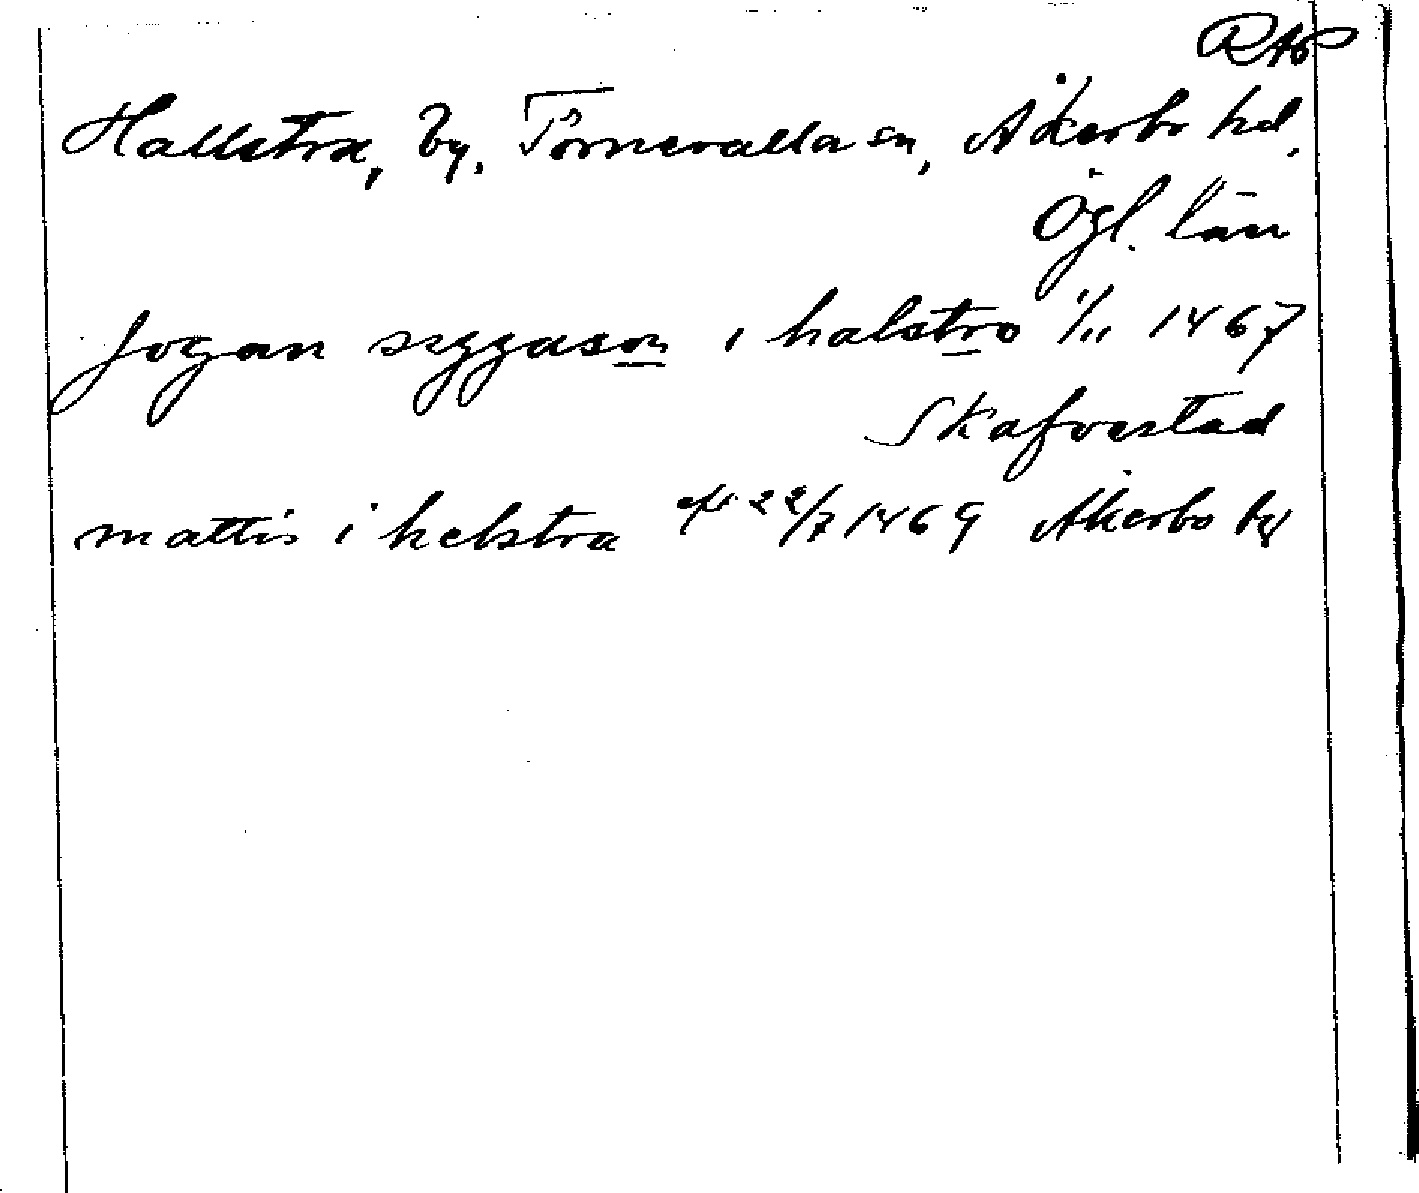 RAP
Hallstra, by, Törnevalla sn, Åkerbo hd,
Ögl. län
Jogan siggason i halstro 1/11 1467
Skafvestad
mattis i helstra eft 22/7 1469 Åkerbo by